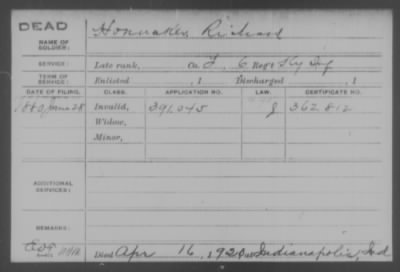 DEAD
NAME OF SOLDIER: Honnaker, Richard
SERVICE: Late rank, Co. F, 6 Reg't Ky Inf
TERM OF SERVICE: Enlisted , 1 Discharged , 1
DATE OF FILING. CLASS. APPLICATION NO. LAW. CERTIFICATE NO.
1880 June 28 Invalid, 391045 J 362812
Widow,
Minor,
ADDITIONAL SERVICES:
REMARKS:
Died Apr 16, 1920, at Indianapolis, Ind